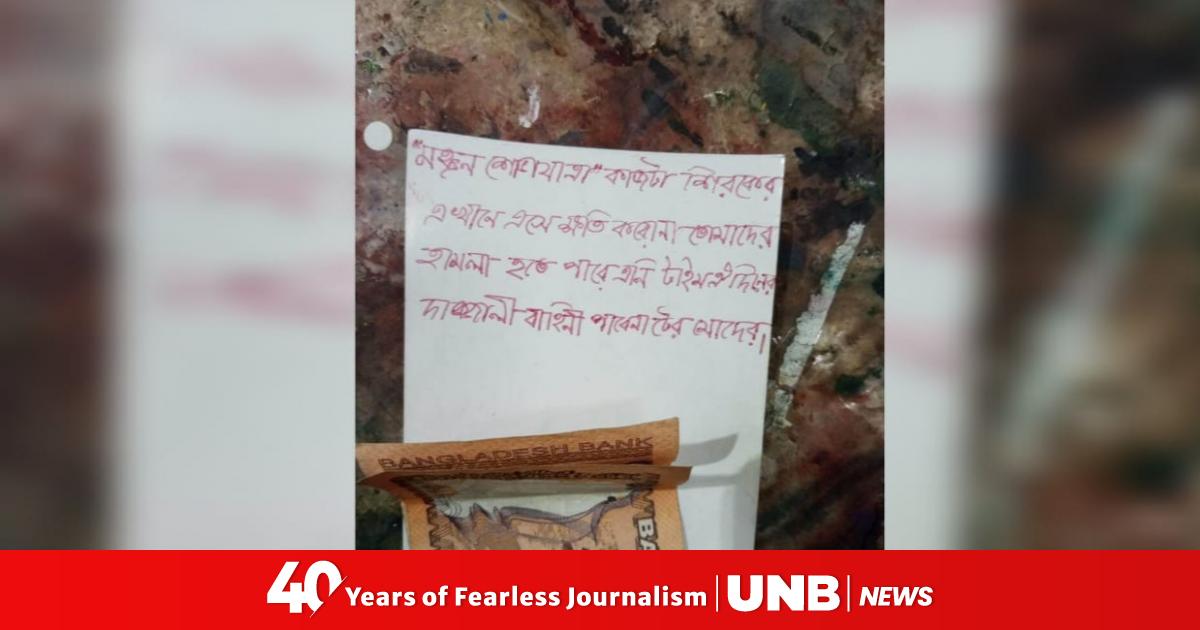 "মঙ্গল শোভাযাত্রা" কাজটা শিরকের
এখানে এসে ক্ষতি করোনা তোমাদের
হামলা হতে পারে এনি টাইম ঐদিনের
দাজ্জালী বাহিনী পাবেনা টের মোদের।
BANGLADESH BANK
40 Years of Fearless Journalism | UNB | NEWS